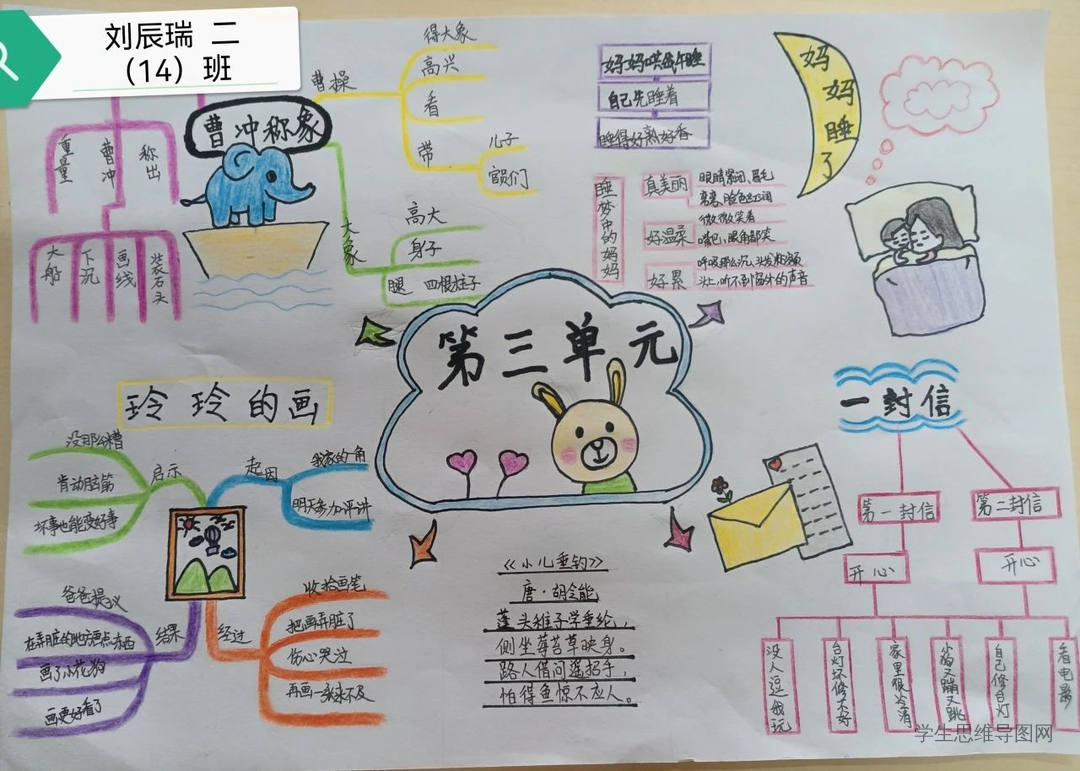 刘辰瑞 二
（14）班
曹冲称象
重量
曹冲
称出
大船
下沉
画线
装石头
曹操
得大象
高兴
看
带
儿子
官员们
大象
高大
身子
腿 四根柱子
妈妈哄我午睡
自己先睡着
睡得好熟好香
妈妈睡了
睡梦中的妈妈
真美丽
眼睛紧闭,眉毛
弯弯,脸色红润
好温柔
微微笑着
嘴巴,眼角都笑
好累
呼吸那么沉,头发粘额
头上,听不到窗外的声音
第三单元
玲玲的画
没那么糟
肯动脑筋
坏事也能变好事
启示
起因
我家的一角
明天参加评讲
爸爸提议
在弄脏的地方画点东西
画了小花狗
画更好看了
结果
经过
收拾画笔
把画弄脏了
伤心哭泣
再画一张来不及
《小儿垂钓》
唐·胡令能
蓬头稚子学垂纶,
侧坐莓苔草映身。
路人借问遥招手,
怕得鱼惊不应人。
一封信
第一封信
第二封信
开心
开心
没人逗我玩
台灯坏修不好
家里很冷清
小狗又蹦又跳
自己修台灯
看电影
学生思维导图网